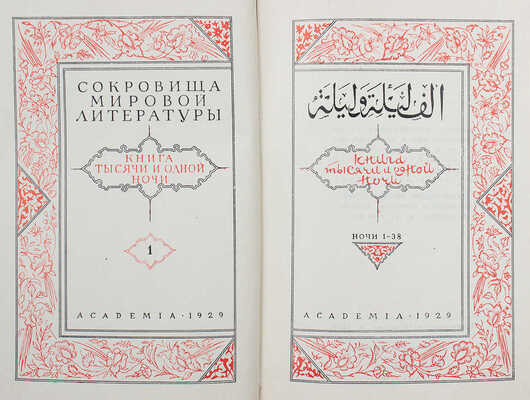 СОКРОВИЩА
МИРОВОЙ
ЛИТЕРАТУРЫ
КНИГА
ТЫСЯЧИ И ОДНОЙ
НОЧИ
1
ACADEMIA · 1929
الف ليلة وليلة
Книга
тысячи и одной
ночи
НОЧИ 1–38
ACADEMIA · 1929